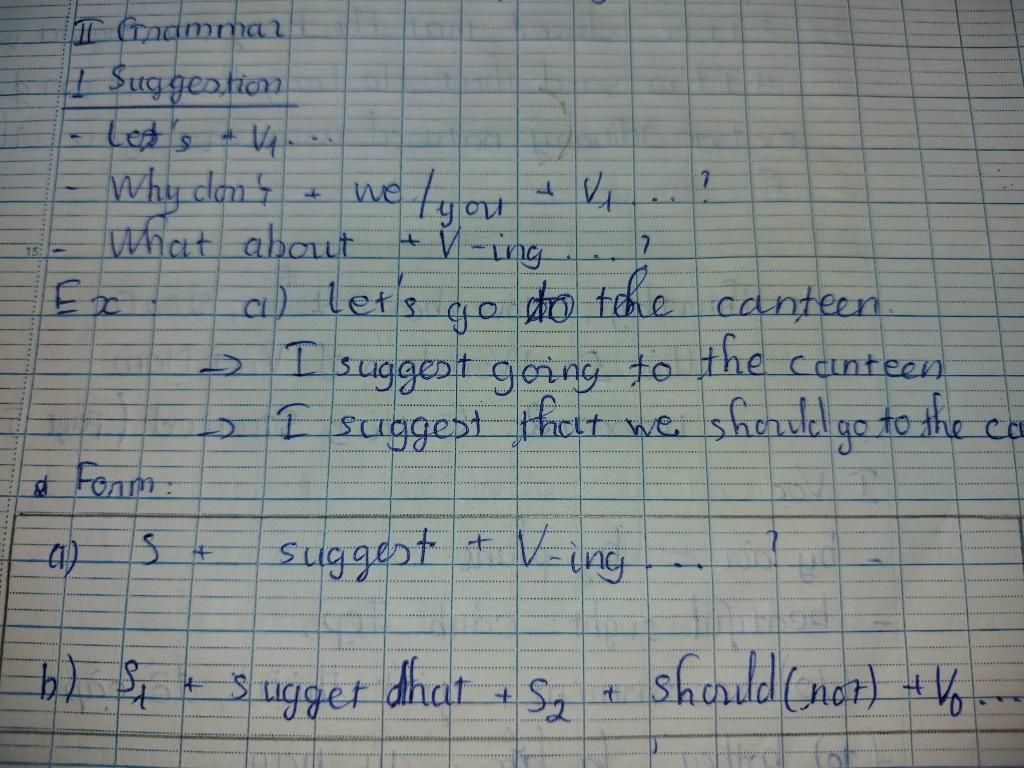 II Grammar
1 Suggestion
- Let's + V1 ...
- Why don't + we/you + V1 ...?
- What about + V-ing ....?
Ex: a) Let's go to the canteen.
→ I suggest going to the canteen
→ I suggest that we should go to the ca
Form:
a) S + suggest + V-ing ... ?
b) S1 + sugget that + S2 + should (not) + V0 ...